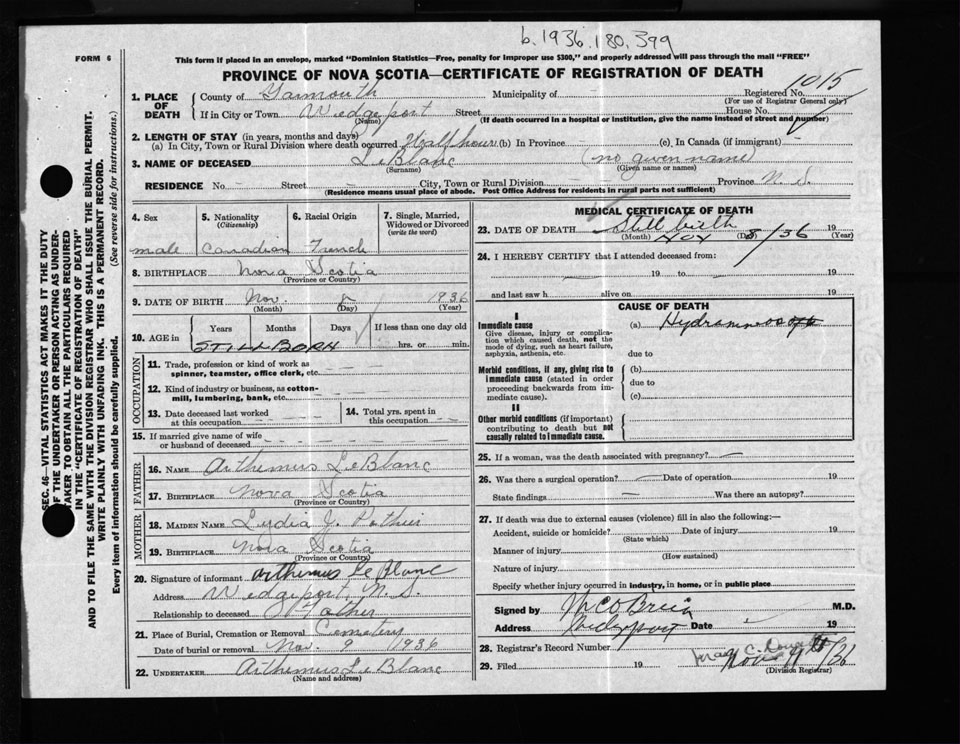 b. 1936. 180, 399
FORM 6
This form if placed in an envelope, marked "Dominion Statistics—Free, penalty for improper use $300," and properly addressed will pass through the mail "FREE"
PROVINCE OF NOVA SCOTIA—CERTIFICATE OF REGISTRATION OF DEATH
1015
1. PLACE OF DEATH
County of Yarmouth Municipality of Registered No.
(For use of Registrar General only)
If in City or Town Wedgeport Street House No.
(Name) (If death occurred in a hospital or institution, give the name instead of street and number)
2. LENGTH OF STAY (in years, months and days)
(a) In City, Town or Rural Division where death occurred Half hour (b) In Province (c) In Canada (if immigrant)
3. NAME OF DECEASED LeBlanc (no given name)
(Surname) (Given name or names)
RESIDENCE No. Street City, Town or Rural Division Province N. S.
(Residence means usual place of abode. Post Office Address for residents in rural parts not sufficient)
4. Sex 5. Nationality (Citizenship) 6. Racial Origin 7. Single, Married, Widowed or Divorced (write the word)
male Canadian French
8. BIRTHPLACE Nova Scotia
(Province or Country)
9. DATE OF BIRTH Nov. 8 1936
(Month) (Day) (Year)
10. AGE in Years Months Days If less than one day old
STILL BORN hrs. or min.
OCCUPATION
11. Trade, profession or kind of work as spinner, teamster, office clerk, etc.
12. Kind of industry or business, as cotton-mill, lumbering, bank, etc.
13. Date deceased last worked at this occupation 14. Total yrs. spent in this occupation
15. If married give name of wife or husband of deceased
FATHER
16. NAME Arthemus LeBlanc
17. BIRTHPLACE Nova Scotia
(Province or Country)
MOTHER
18. MAIDEN NAME Lydia J. Pothier
19. BIRTHPLACE Nova Scotia
(Province or Country)
20. Signature of informant Arthemus Le Blanc
Address Wedgeport, N. S.
Relationship to deceased Father
21. Place of Burial, Cremation or Removal Cemetery
Date of burial or removal Nov. 9 1936
22. UNDERTAKER Arthemus LeBlanc
(Name and address)
MEDICAL CERTIFICATE OF DEATH
Still birth
23. DATE OF DEATH Nov 8/36 19
(Month) (Day) (Year)
24. I HEREBY CERTIFY that I attended deceased from:
19 to 19
and last saw h alive on 19
CAUSE OF DEATH
I
Immediate cause
Give disease, injury or complication which caused death, not the mode of dying, such as heart failure, asphyxia, asthenia, etc.
(a)
due to
Morbid conditions, if any, giving rise to immediate cause (stated in order proceeding backwards from immediate cause).
(b)
due to
(c)
II
Other morbid conditions (if important) contributing to death but not causally related to immediate cause.
25. If a woman, was the death associated with pregnancy?
26. Was there a surgical operation? Date of operation 19
State findings Was there an autopsy?
27. If death was due to external causes (violence) fill in also the following:—
Accident, suicide or homicide? Date of injury 19
(State which)
Manner of injury
(How sustained)
Nature of injury
Specify whether injury occurred in industry, in home, or in public place
Signed by M.D.
Address Wedgeport Date 19
28. Registrar's Record Number
29. Filed 19
(Division Registrar)
SEC. 46—VITAL STATISTICS ACT MAKES IT THE DUTY
OF THE UNDERTAKER OR PERSON ACTING AS UNDERTAKER TO OBTAIN ALL THE PARTICULARS REQUIRED
IN THE "CERTIFICATE OF REGISTRATION OF DEATH"
AND TO FILE THE SAME WITH THE DIVISION REGISTRAR WHO SHALL ISSUE THE BURIAL PERMIT.
WRITE PLAINLY WITH UNFADING INK. THIS IS A PERMANENT RECORD.
Every item of information should be carefully supplied. (See reverse side for instructions.)